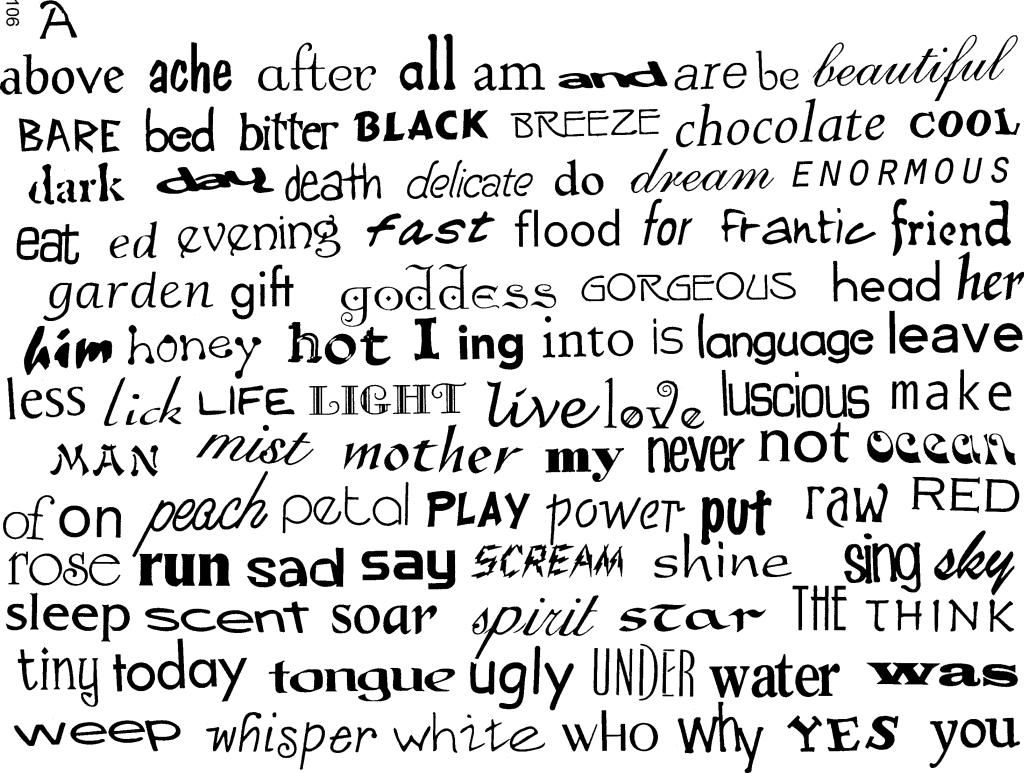 106
A
above ache after all am and are be beautiful
BARE bed bitter BLACK BREEZE chocolate COOL
dark day death delicate do dream ENORMOUS
eat ed evening fast flood for frantic friend
garden gift goddess GORGEOUS head her
him honey hot I ing into is language leave
less lick LIFE LIGHT live love luscious make
MAN mist mother my never not ocean
of on peach petal PLAY power put raw RED
rose run sad say SCREAM shine sing sky
sleep scent soar spirit star THE THINK
tiny today tongue ugly UNDER water was
weep whisper white WHO why YES you